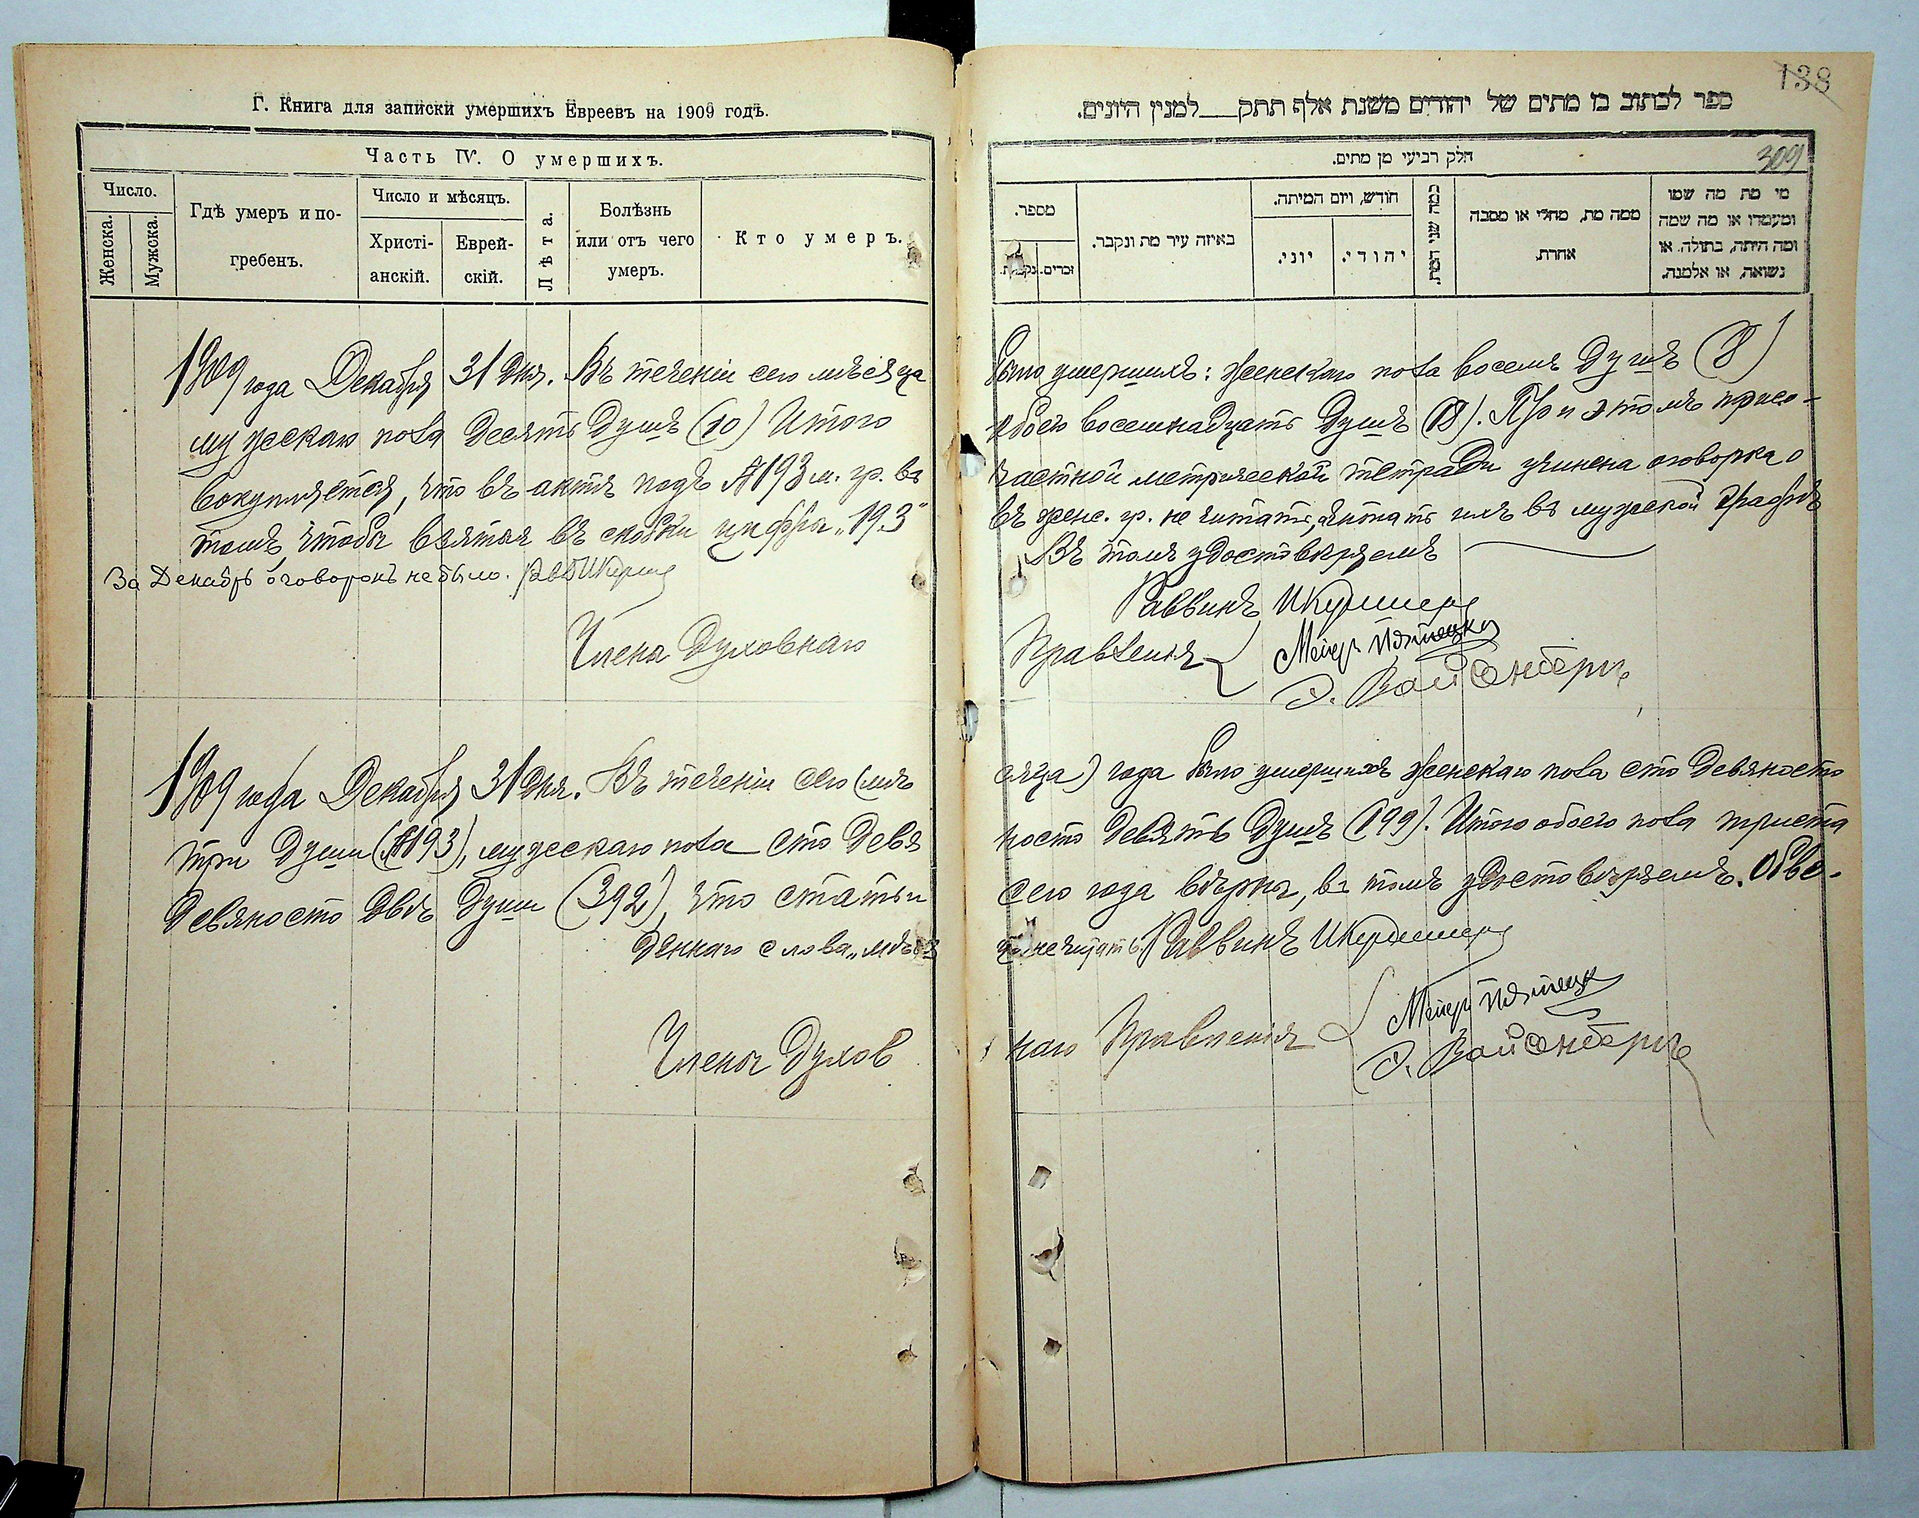 Г. Книга для записки умершихъ Евреевъ на 1909 годъ.
Часть IV. О умершихъ.
Число.
Женска.
Мужска.
Гдѣ умеръ и по-
гребенъ.
Число и мѣсяцъ.
Христі-
анскій.
Еврей-
скій.
Лѣта.
Болѣзнь
или отъ чего
умеръ.
Кто умеръ.
138
ספר לכתוב בו מתים של יהודים משנת אלף תתק___למנין היונים.
חלק רביעי מן מתים.
309
מספר.
נקבות.
זכרים.
באיזה עיר מת ונקבר.
חודש, ויום המיתה.
יוני.
יהודי.
כמה שני המת.
ממה מת, מחלי או מסבה
אחרת.
מי מת מה שמו
ומעמדו או מה שמה
ומה היתה, בתולה. או
נשואה, או אלמנה.
1909 года Декабря 31 дня. Въ теченіи сего мѣсяца было умершихъ: женскаго пола восемь душъ (8)
мужскаго пола десять душъ (10) Итого обоего восемнадцать душъ (18). При этомъ присо-
вокупляется, что въ актѣ подъ №193 м. гр. въ частной метрической тетради учинена оговорка о
томъ, чтобы взятыя въ скобки цифры „193" въ женс. гр. не читать, а читать ихъ въ мужской графѣ
За Декабрь оговорокъ не было.
Въ томъ удостовѣряемъ
Раввинъ
Члены Духовнаго Правленія
Мейеръ
Э. Вайсенбергъ
1909 года Декабря 31 дня. Въ теченіи сего (мѣ сяца) года было умершихъ женскаго пола сто девяносто
три души (№193), мужескаго пола сто девя носто девять душъ (199). Итого обоего пола триста
девяносто двѣ души (392), что статьи сего года вѣрны, въ томъ удостовѣряемъ. Обве-
деннаго слова „мѣсяца" не читать. Раввинъ
Члены Духов наго Правленія
Мейеръ
Э. Вайсенбергъ